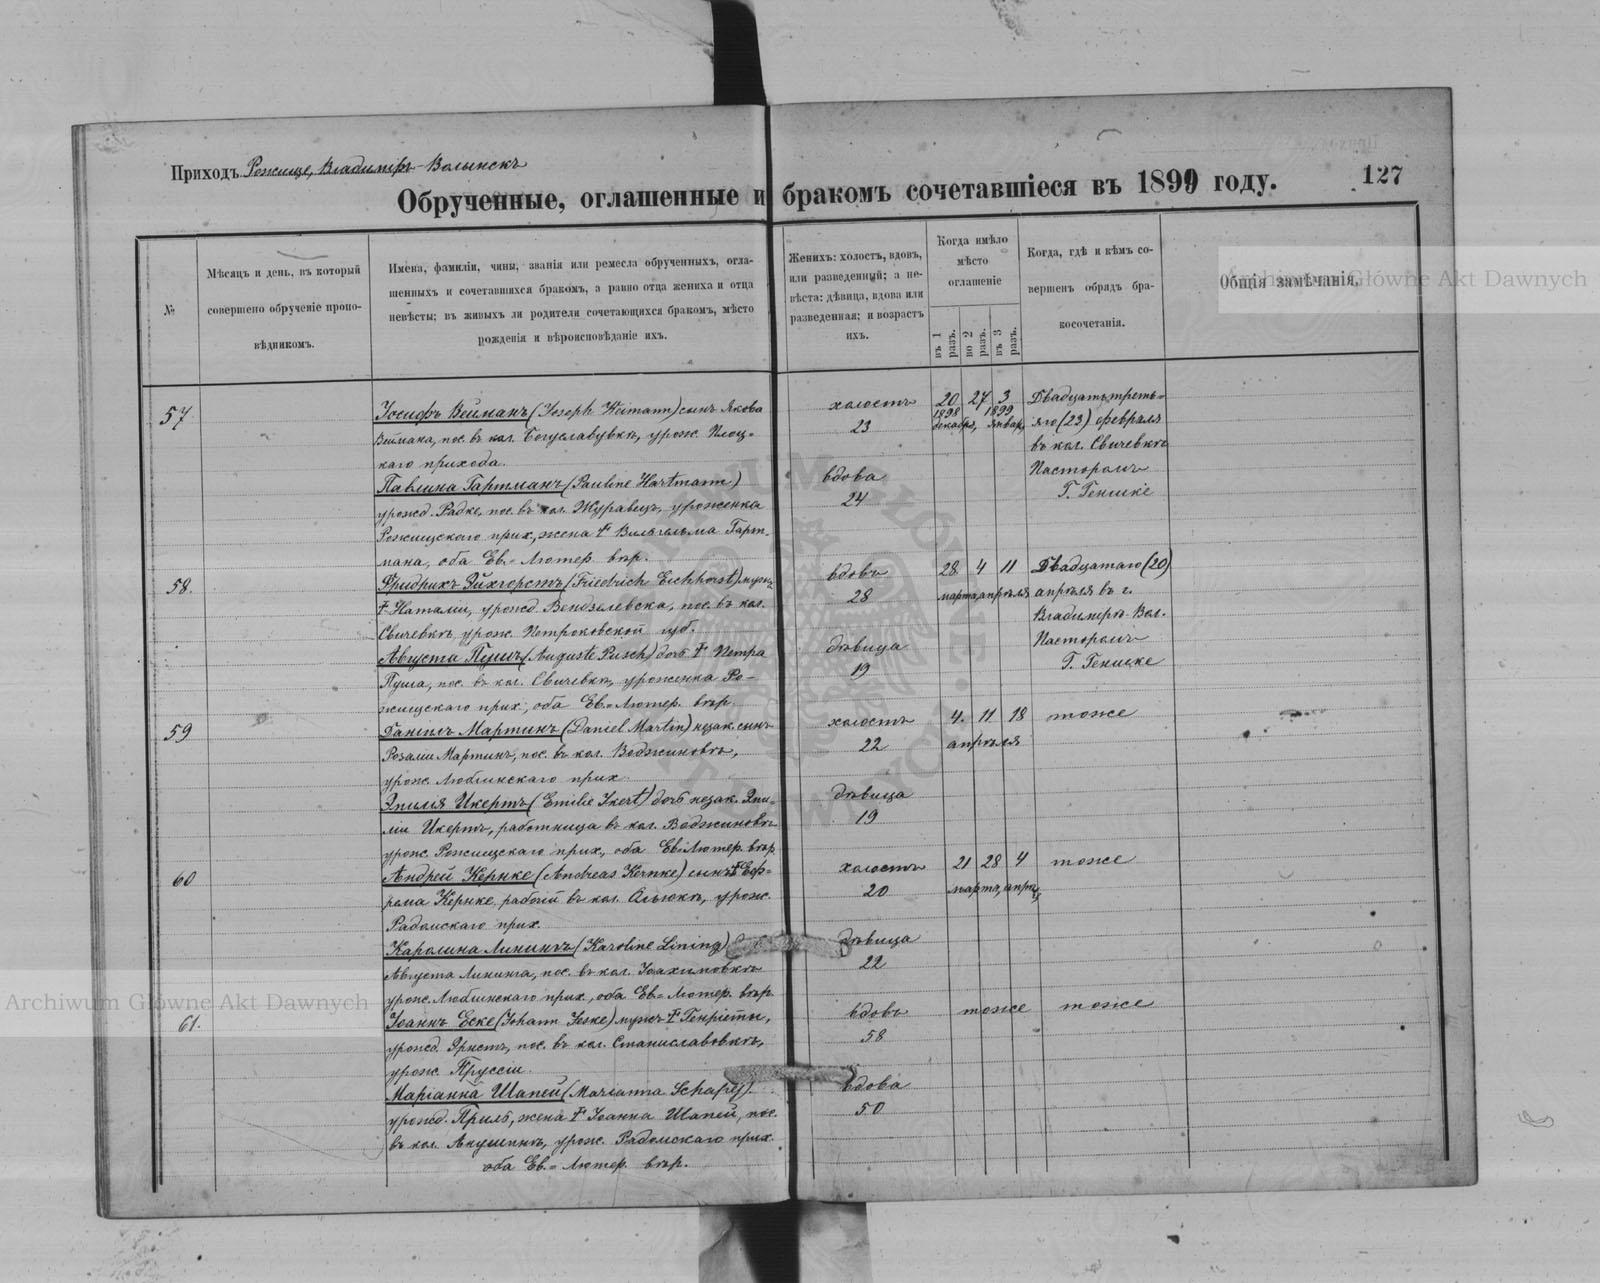 Приходъ Рожище, Владиміръ-Волынскъ
Обрученные, оглашенные и бракомъ сочетавшіеся въ 1899 году.
127
№
Мѣсяцъ и день, въ который
совершено обрученіе пропо-
вѣдникомъ.
Имена, фамиліи, чины, званія или ремесла обрученныхъ, огла-
шенныхъ и сочетавшихся бракомъ, а равно отца жениха и отца
невѣсты; въ живыхъ ли родители сочетающихся бракомъ, мѣсто
рожденія и вѣроисповѣданіе ихъ.
Женихъ: холостъ, вдовъ,
или разведенный; а не-
вѣста: дѣвица, вдова или
разведенная; и возрастъ
ихъ.
Когда имѣло
мѣсто
оглашеніе
въ 1 разъ.
во 2 разъ.
въ 3 разъ.
Когда, гдѣ и кѣмъ со-
вершенъ обрядъ бра-
косочетанія.
Общія замѣчанія.
Archiwum Główne Akt Dawnych
57.
Іосифъ Вейманъ (Joseph Weimann) сынъ Якова
Веймана, пос. въ кол. Богуславувкѣ, урож. Плоц=
каго прихода.
Павлина Гартманъ (Pauline Hartmann)
урожд. Радке, пос. въ кол. Журавецъ, уроженка
Рожищскаго прих., жена † Вильгельма Гарт-
мана, оба Ев.=Лютер. вѣр.
холостъ
23
вдова
24
20 27 3
1898 1899
декабря, январ,
Двадцать треть=
яго (23) февраля
въ кол. Свичевкѣ
Пасторомъ
Г. Геншке
58.
Фридрихъ Эйхгорстъ (Friedrich Eichhorst) мужъ
† Наталіи, урожд. Вендзелевска, пос. въ кол.
Свичевкѣ, урож. Петроковской губ.
Августа Пушъ (Auguste Pusch) дочь † Петра
Пуша, пос. въ кол. Свичевкѣ, уроженка Ро-
жищскаго прих., оба Ев.=Лютер. вѣр.
вдовъ
28
дѣвица
19
28 4 11
марта, апрѣля
Двадцатаго (20)
апрѣля въ г.
Владимірѣ-Вол.
Пасторомъ
Г. Геншке
59
Даніилъ Мартинъ (Daniel Martin) незак. сынъ
Розаліи Мартинъ, пос. въ кол. Воджиновкѣ,
урож. Люблинскаго прих.
Эмилія Икертъ (Emilie Ikert) дочь незак. Эми-
ліи Икертъ, работница въ кол. Воджиновкѣ
урож. Рожищскаго прих., оба Ев.=Лютер. вѣр.
холостъ
22
дѣвица
19
4. 11 18
апрѣля
тоже
60
Андрей Кернке (Andreas Kernke) сынъ † Еф=
рема Кернке, рабочій въ кол. Олыокѣ, урож.
Радомскаго прих.
Каролина Линингъ (Karoline Lining)
Августа Линина, пос. въ кол. Іоахимовкѣ
урож. Люблинскаго прих., оба Ев.=Лютер. вѣр.
холостъ
20
дѣвица
22
21 28 4
мартъ, апрѣ
тоже
61.
Іоаннъ Еске (Johann Jeske) мужъ † Генріетты,
урожд. Эрнстъ, пос. въ кол. Станиславовкѣ,
урож. Пруссіи.
Маріанна Шапей (Marianna Schapey)
урожд. Приль, жена † Іоанна Шапей, пос.
въ кол. Анушинѣ, урож. Радомскаго прих.
оба Ев.=Лютер. вѣр.
вдовъ
58
вдова
50
тоже
тоже
Archiwum Główne Akt Dawnych